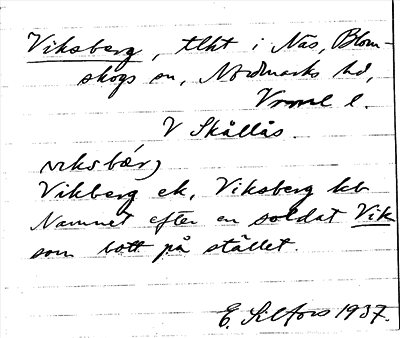 Viksberg, tlht i Näs, Blom-
skogs sn, Nordmarks hd,
Vrml l.
V Skållås.
viksbær)
Vikberg ek, Viksberg kb
Namnet efter en soldat Vik
som bott på stället.
E. Silfors 1937.